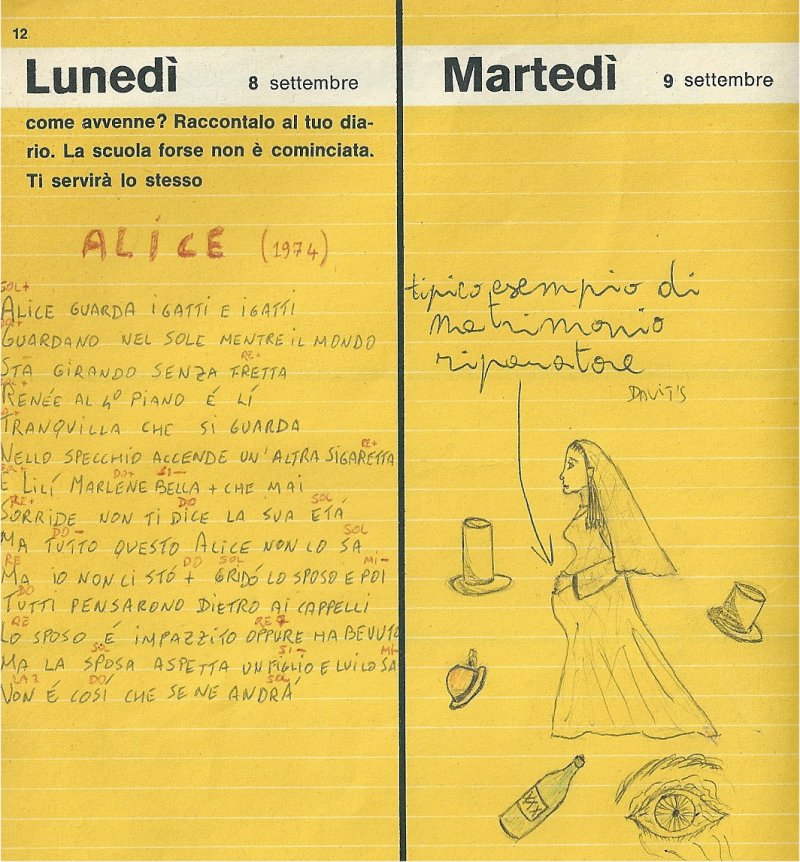 12
Lunedì 8 settembre
come avvenne? Raccontalo al tuo dia-
rio. La scuola forse non è cominciata.
Ti servirà lo stesso
ALICE (1974)
SOL+
ALICE GUARDA I GATTI E I GATTI
GUARDANO NEL SOLE MENTRE IL MONDO
RE+
STÀ GIRANDO SENZA FRETTA
RENÉE AL 4º PIANO É LÍ
TRANQUILLA CHE SI GUARDA
RE+
NELLO SPECCHIO ACCENDE UN'ALTRA SIGARETTA
DO+ SI-
E LILÍ MARLENE BELLA + CHE MAI
RE+ DO SOL
SORRIDE NON TI DICE LA SUA ETÁ
DO SOL
MA TUTTO QUESTO ALICE NON LO SA
RE DO SOL MI-
MA IO NON CI STÓ + GRIDÓ LO SPOSO E POI
DO
TUTTI PENSARONO DIETRO AI CAPPELLI
RE RE7
LO SPOSO É IMPAZZITO OPPURE HA BEVUTO
SOL SI- MI-
MA LA SPOSA ASPETTA UN FIGLIO E LUI LO SA
LA7 DO SOL
NON É COSÍ CHE SE NE ANDRÁ
Martedì 9 settembre
tipico esempio di
matrimonio
riparatore
DAVIT'S
XXX